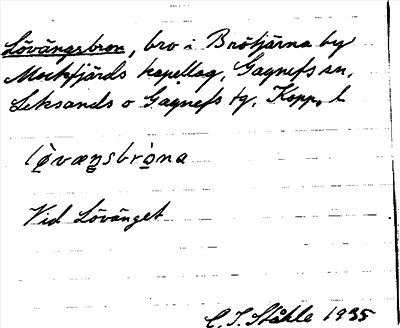 Lövängsbron, bro i Brötjärna by
Mockfjärds kapellag, Gagnefs sn,
Leksands o Gagnefs tg, Kopp. l
lö̀væŋsbrò̤na
Vid Lövänget
C. I. Ståhle 1935